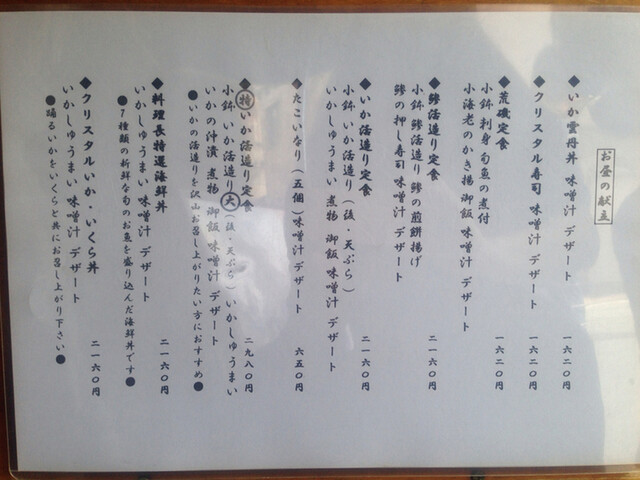 お昼の献立
◆いか雲丹丼 味噌汁 デザート 一六二〇円
◆クリスタル寿司 味噌汁 デザート 一六二〇円
◆荒磯定食 一六二〇円
小鉢 刺身 旬魚の煮付
小海老のかき揚 御飯 味噌汁 デザート
◆鯵活造り定食 二一六〇円
小鉢 鯵活造り 鯵の煎餅揚げ
鯵の押し寿司 味噌汁 デザート
◆いか活造り定食 二一六〇円
小鉢 いか活造り(後・天ぷら)
いかしゅうまい 煮物 御飯 味噌汁 デザート
◆たこいなり(五個)味噌汁 デザート 六五〇円
◆特いか活造り定食 二九八〇円
小鉢 いか活造り大(後・天ぷら) いかしゅうまい
いかの沖漬 煮物 御飯 味噌汁 デザート
●いかの活造りを沢山お召し上がりたい方におすすめ●
◆料理長特選海鮮丼 二一六〇円
いかしゅうまい 味噌汁 デザート
●7種類の新鮮な旬のお魚を盛り込んだ海鮮丼です●
◆クリスタルいか・いくら丼 二一六〇円
いかしゅうまい 味噌汁 デザート
●踊るいかをいくらと共にお召し上がり下さい●